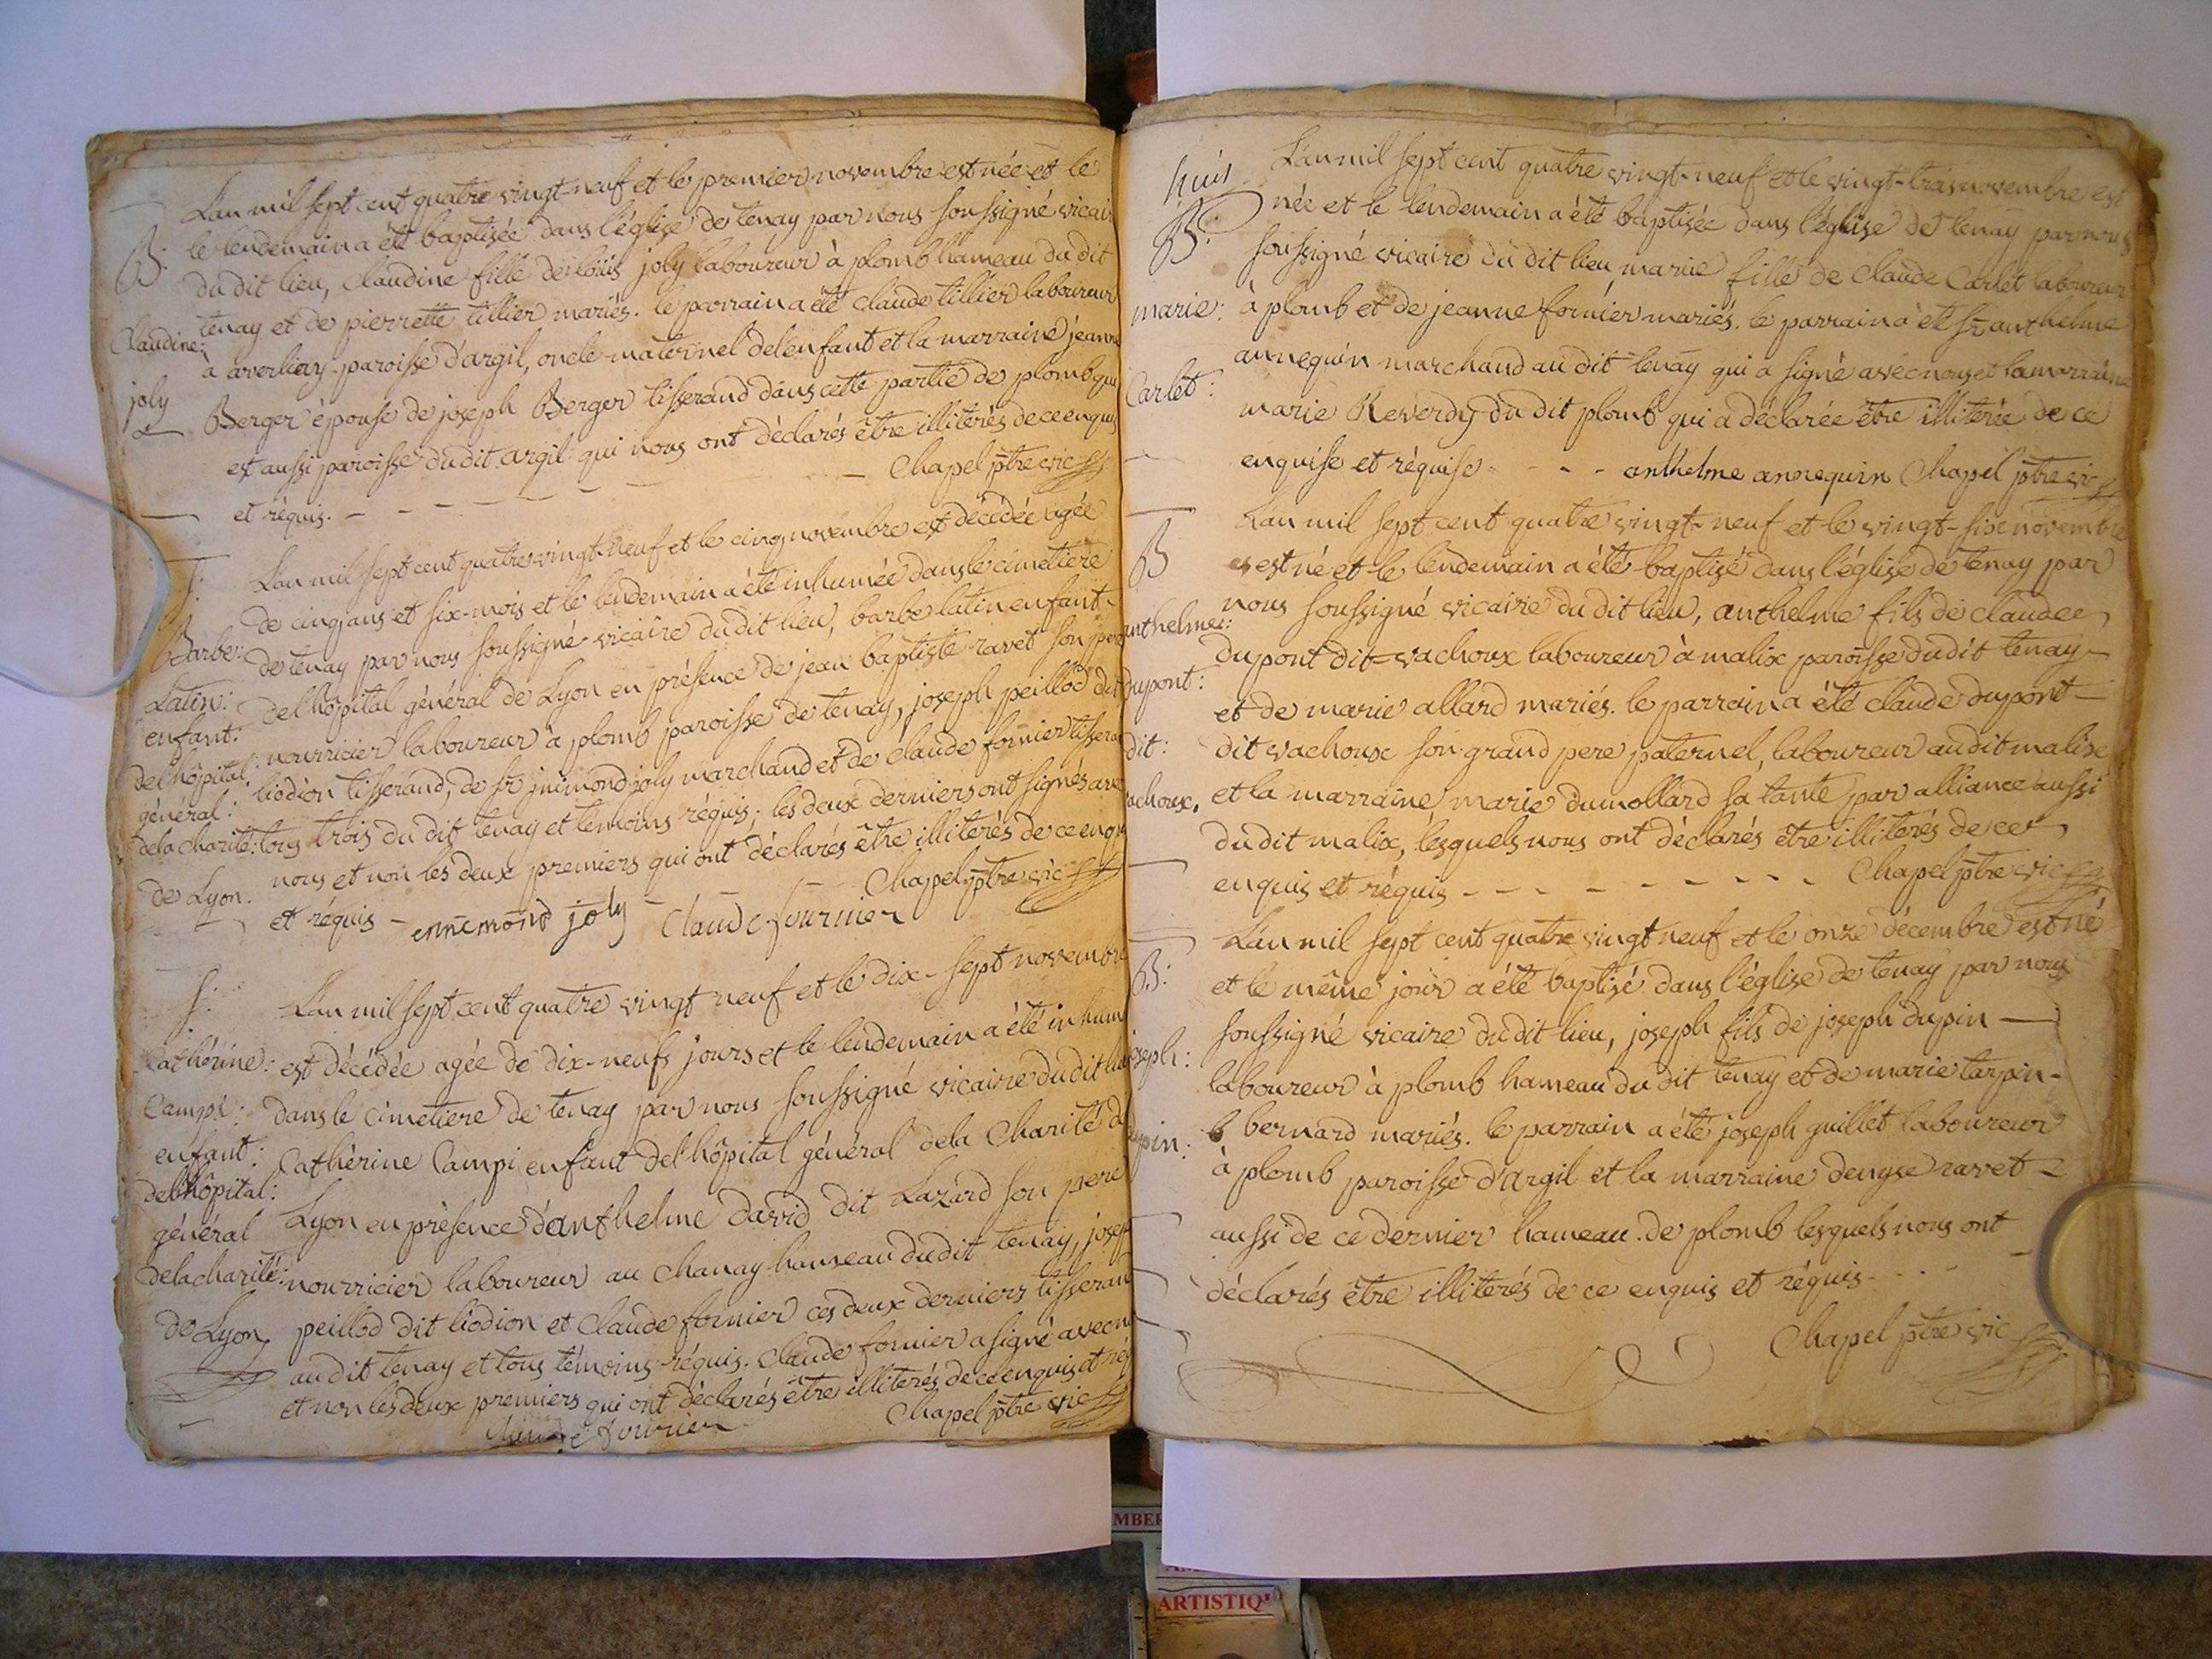 L'an mil sept cent quatre vingt-neuf et le premier novembre est née et le
B: le lendemain a été baptisée dans l'église de tenay par nous soussigné vicair
du dit lieu, Claudine fille de loüis joly laboureur à plomb hameau du dit
Claudine: tenay et de pierrette tillier mariés. le parrain a été Claude tillier laboureur
à averliay paroisse d'argil, oncle maternel del'enfant et la marraine jeanne
joly Berger épouse de joseph Berger tisserand dans cette partie de plomb qui
est aussi paroisse dudit argil qui nous ont déclarés être illiterés de ce enquis
et réquis. - - - - - - Chapel ptre vic
S: L'an mil sept cent quatre vingt neuf et le cinq novembre est décédée agée
de cinq ans et six-mois et le lendemain a été inhumée dans le cimetiere
Barbe: de tenay par nous soussigné vicaire dudit lieu, barbe latin enfant-
Latin: del'hôpital général de Lyon en présence de jean baptiste ravet son pere
enfant: nourricier laboureur à plomb paroisse de tenay, joseph peillod dit
del'hôpital: liodion tisserand, de sr jnimond joly marchand et de claude fornier tisseran
général:
dela charité: tous trois du dit tenay et témoins réquis; les deux derniers ont signés avec
nous et non les deux premiers qui ont déclarés être illiterés de ce enquis
de Lyon. et réquis - Chapel ptre vic
ennemond joly Claude fournier
S: L'an mil sept cent quatre vingt neuf et le dix-sept novembre
Cathérine: est décédée agée de dix-neufs jours et le lendemain a été inhum
Campi: dans le cimetiere de tenay par nous soussigné vicaire dudit lieu
enfant: Cathérine Campi enfant del'hôpital général dela Charité de
del'hôpital: Lyon en présence d'anthelme david dit Lazard son pere
général
dela charité: nourricier laboureur au Chanay hameau dudit tenay, josep
de Lyon peillod dit liodion et Claude fornier ces deux derniers tisseran
audit tenay et tous témoins réquis. Claude fornier a signé avec n
et non les deux premiers qui ont déclarés être illiterés de ce enquis et réq
Claude fournier Chapel ptre vic
huis L'an mil sept cent quatre vingt-neuf et le vingt-trois novembre est
B: née et le lendemain a été baptisée dans l'église de tenay par nous
soussigné vicaire du dit lieu, marie fille de Claude Carlet laboureur
marie: à plomb et de jeanne fornier mariés. le parrain a été sr anthelme
annequin marchand au dit tenay qui a signé avec nous et la marraine
Carlet: marie Reverdy du dit plomb qui a déclarée être illiterée de ce
enquise et réquise - - - anthelme annequin Chapel ptre vic
L'an mil sept cent quatre vingt-neuf et le vingt-six novembre
B est né et le lendemain a été baptisé dans l'église de tenay par
nous soussigné vicaire du dit lieu, anthelme fils de claude
anthelme: dupont dit vachoux laboureur à malix paroisse dudit tenay
dupont: et de marie allard mariés. le parrain a été claude dupont
dit: dit vachoux son grand pere paternel, laboureur audit malix
achoux, et la marraine marie dumollard sa tante par alliance aussi
dudit malix, lesquels nous ont déclarés être illiterés de ce
enquis et réquis - - - - - - - - - Chapel ptre vic
L'an mil sept cent quatre vingt neuf et le onze décembre est né
B: et le même jour a été baptisé dans l'église de tenay par nous
soussigné vicaire dudit lieu, joseph fils de joseph dupin
oseph: laboureur à plomb hameau du dit tenay et de marie tarpin-
bernard mariés. le parrain a été joseph guillet laboureur
upin: à plomb paroisse d'argil et la marraine denyse ravet
aussi de ce dernier hameau de plomb lesquels nous ont
déclarés être illiterés de ce enquis et réquis - - - -
Chapel ptre vic
MBER
ARTISTIQ'